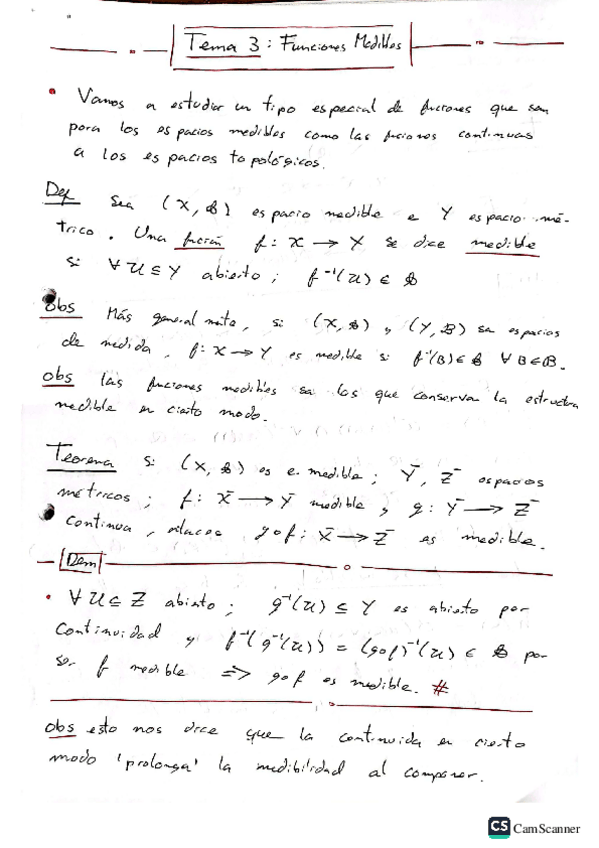 Tema 3 : Funciones Medibles
• Vamos a estudiar un tipo especial de funciones que son
para los espacios medibles como las funciones continuas
a los espacios topológicos.
Def Sea (X, 𝓑) espacio medible e Y espacio mé-
trico. Una función f: X → Y se dice medible
si ∀ U ⊆ Y abierto ; f⁻¹(U) ∈ 𝓑
Obs Más generalmente, si (X, 𝓑) y (Y, 𝓑) son espacios
de medida, f: X → Y es medible si f⁻¹(B) ∈ 𝓑 ∀ B ∈ 𝓑.
obs las funciones medibles son las que conservan la estructura
medible en cierto modo.
Teorema Si (X, 𝓑) es e. medible ; Y, Z espacios
métricos ; f: X → Y medible y g: Y → Z
continua, entonces g∘f: X → Z es medible.
Dem
• ∀ U ⊆ Z abierto ; g⁻¹(U) ⊆ Y es abierto por
continuidad y f⁻¹(g⁻¹(U)) = (g∘f)⁻¹(U) ∈ 𝓑 por
ser f medible ⇒ g∘f es medible. #
obs esto nos dice que la continuidad en cierto
modo 'prolonga' la medibilidad al componer.
CS CamScanner